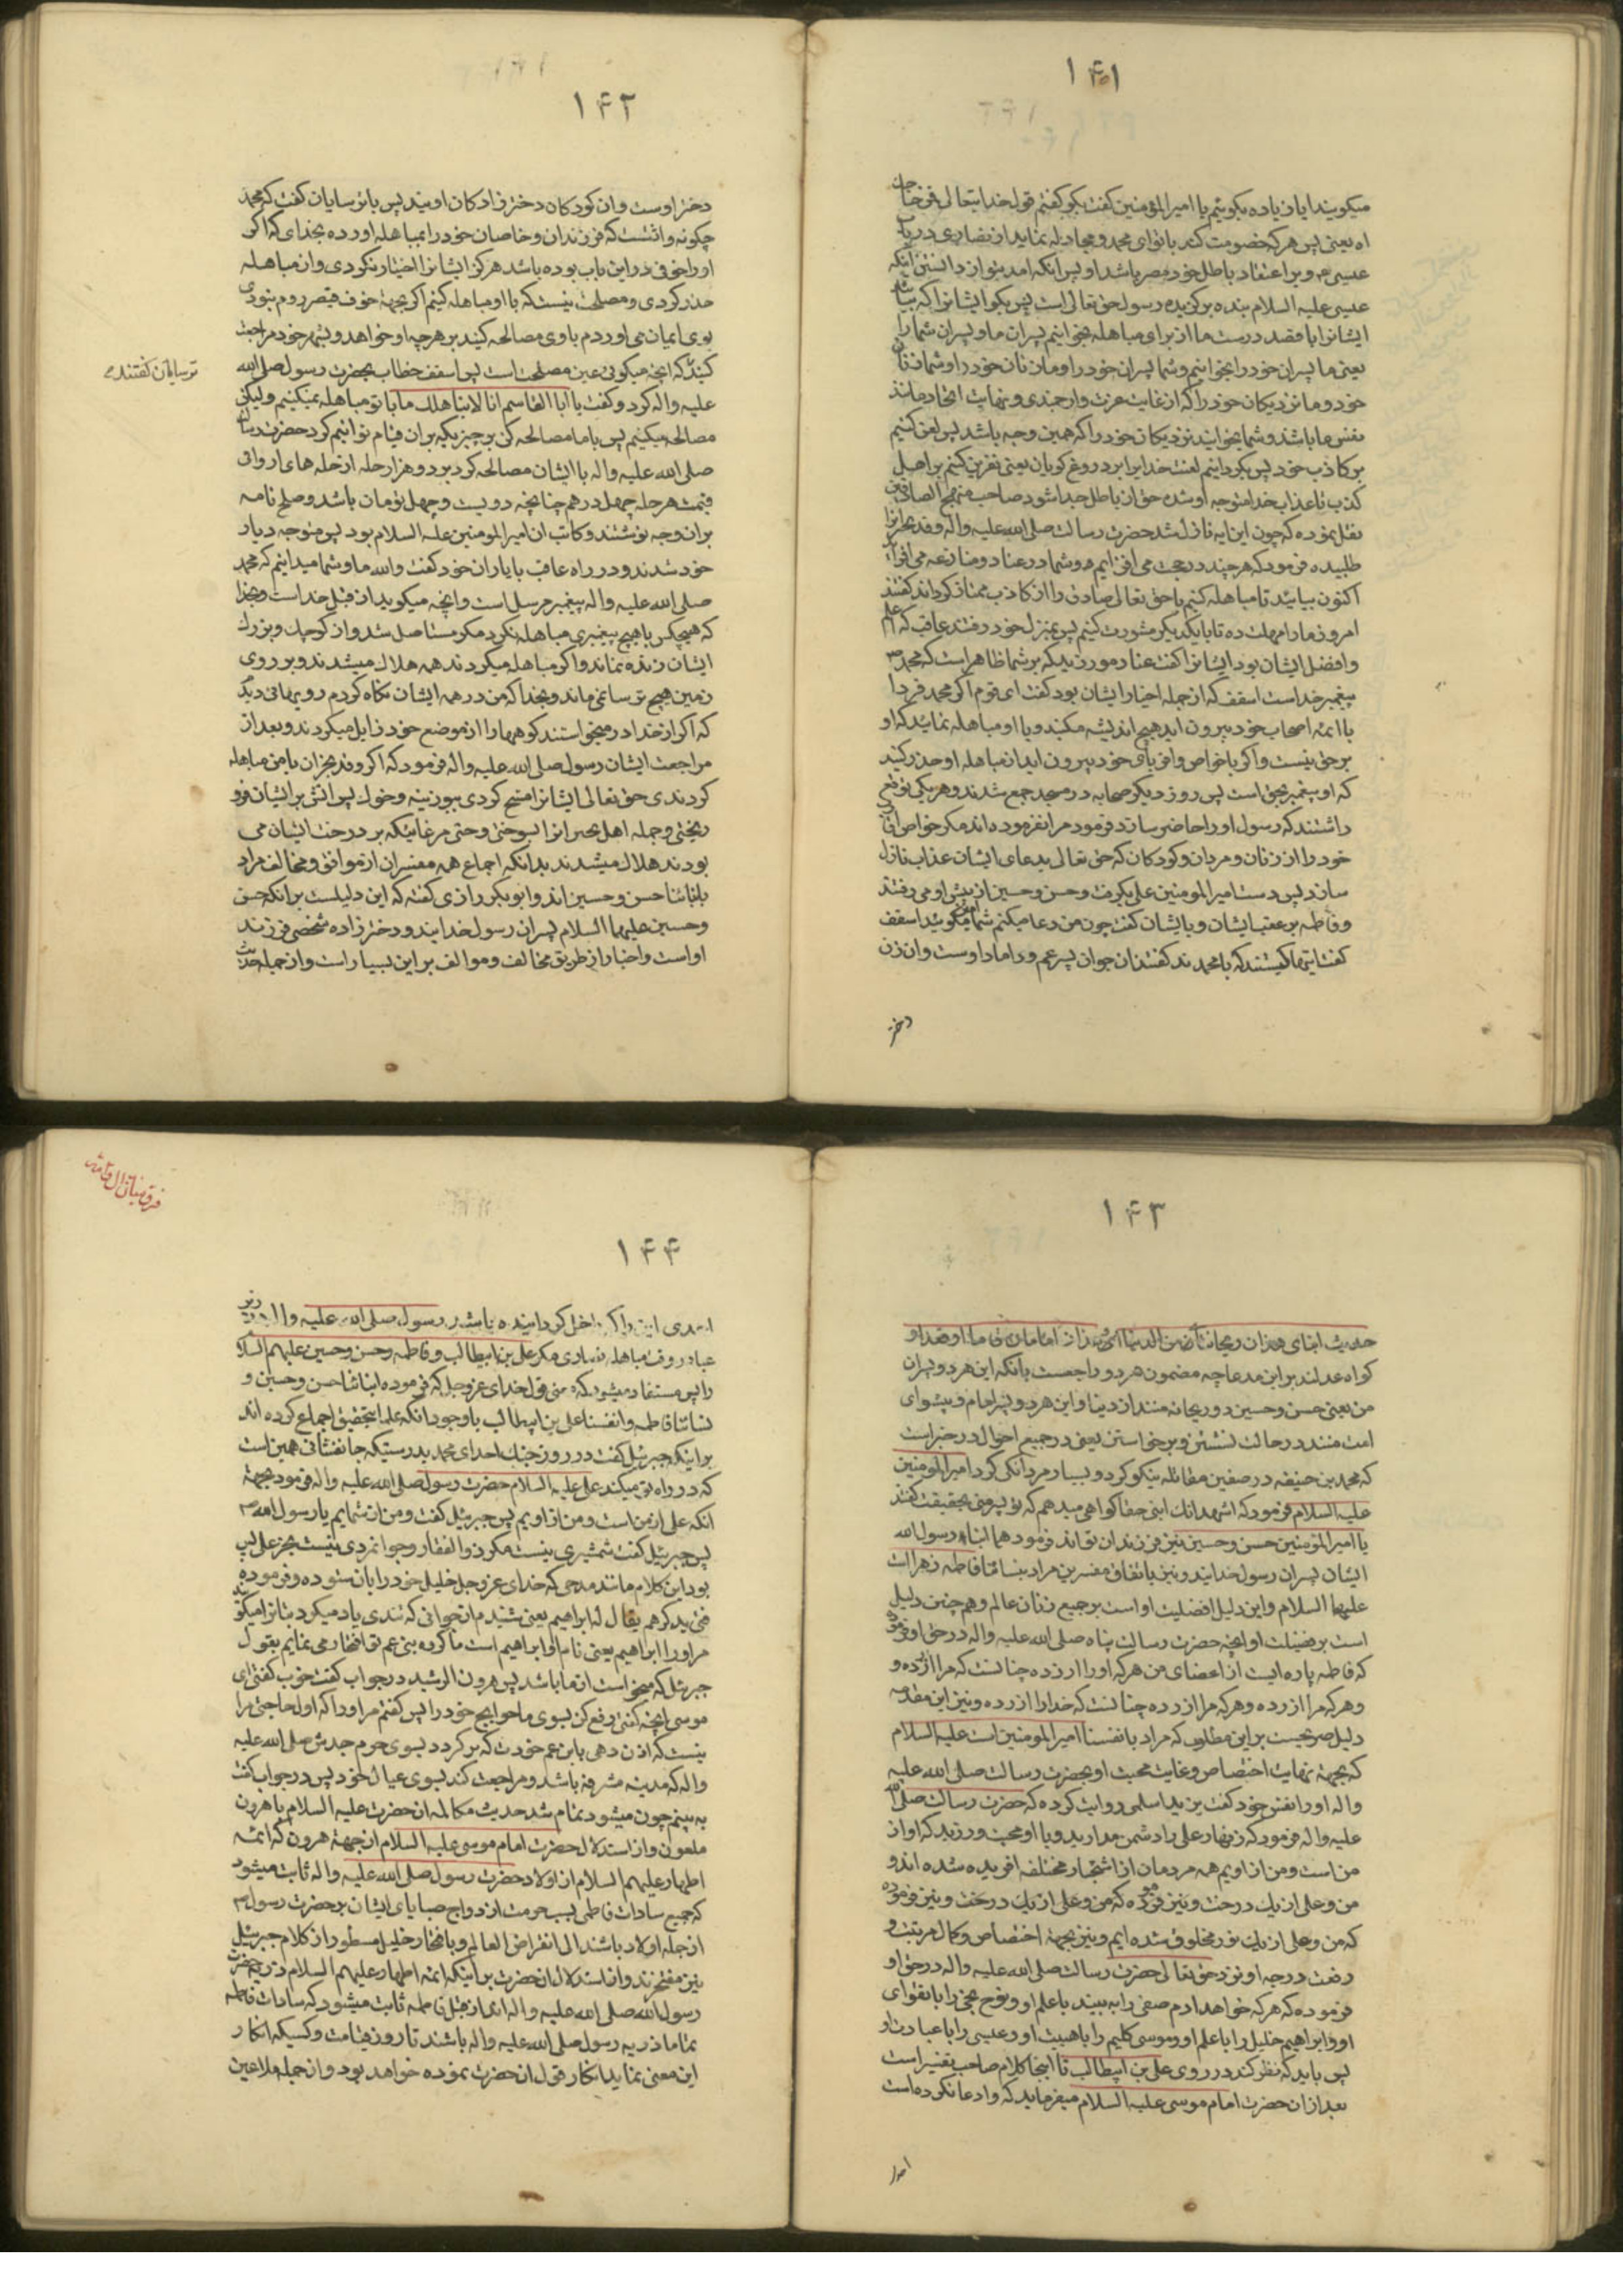 ۱۴۱
میکویند ایا زیاده بکویم یا امیرالمؤمنین کفت بکو کفتم قول خدایتعالی فمن حاجک
اه یعنی پس هر که خصومت کند با تو ای محمد و مجادله نماید از نصاری در باب
عیسی و بر اعتقاد باطل خود مصر باشد او پس انکه امد بتو از دانستن اینکه
عیسی علیه السلام بنده برکزیده رسول حق تعالی است پس بکو ایشانرا که بیائید
ایشانرا با قصد درست ما از برای مباهله بخوانیم پسران ما و پسران شما را
یعنی ما پسران خود را بخوانیم و شما پسران خود را و ما زنان خود را و شما زنان
خود و ما نزدیکان خود را که از غایت عزت و ارجمندی و نهایت اتحاد مانند
نفس ما باشد و شما بخوانید نزدیکان خود را که همین وجه باشد پس لعن کنیم
بر کاذب خود پس بکردانیم لعنت خدایرا بر دروغ کویان یعنی نفرین کنیم بر اهل
کذب تا عذاب خدا متوجه او شده حق از باطل جدا شود صاحب منهج الصادقین
نقل نموده که چون این ایه نازل شد حضرت رسالت صلی الله علیه واله وفد نجرانرا
طلبیده فرمود که هر چند در حجت می افزایم شما در عناد و منازعه می افزائید
اکنون بیائید تا مباهله کنیم تا حق تعالی صادق را از کاذب ممتاز کرداند کفتند
امروز ما را مهلت ده تا با یکدیکر مشورت کنیم پس بمنزل خود رفتند عاقب که اعلم
و افضل ایشان بود ایشانرا کفت عناد مورزید که بر شما ظاهر است که محمد
پیغمبر خداست اسقف که از جمله احبار ایشان بود کفت ای قوم اکر محمد فردا
با ائمه اصحاب خود بیرون اید هیچ اندیشه مکنید و با او مباهله نمائید که او
بر حق نیست و اکر با خواص و اقربای خود بیرون اید از مباهله او حذر کنید
که او پیغمبر بحق است پس روز دیکر صحابه در مسجد جمع شدند و هر یک توقع
داشتند که رسول او را حاضر سازد فرمود مرا نفرموده اند مکر خواص اقارب
خود را از زنان و مردان و کودکان که حق تعالی بدعای ایشان عذاب نازل
سازد پس دست امیرالمومنین علی بکرفت و حسن و حسین از پیش او می رفتند
و فاطمه بر عقب ایشان و با ایشان کفت چون من دعا میکنم شما امین بکوئید اسقف
کفت اینها کیستند که با محمدند کفتند ان جوان پسر عم و داماد اوست و ان زن
دختر
۱۴۲
دختر اوست و ان کودکان دختر زادکان اویند پس با ترسایان کفت که محمد
چکونه واثقست که فرزندان و خاصان خود را بمباهله اورده بخدای که اکر
او را خوفی در این باب بوده باشد هرکز ایشانرا اختیار نکردی و از مباهله
حذر کردی و مصلحت نیست که با او مباهله کنیم اکر بجهة خوف قیصر روم نبودی
بوی ایمان می اوردم با وی مصالحه کنید بر هر چه او خواهد و بشهر خود مراجعت
کنید که انچه میکوئی عین مصلحت است پس اسقف خطاب بحضرت رسول صلی الله
ترسایان کفتند
علیه واله کرد و کفت یا ابا القاسم انا لا نباهلک ما با تو مباهله نمیکنیم ولیکن
مصالحه میکنیم پس با ما مصالحه کن بر چیزیکه بران قیام توانیم کرد حضرت رسالت
صلی الله علیه واله با ایشان مصالحه کرد بر دو هزار حله از حله های اروانی
قیمت هر حله چهل درهم چنانچه دویست و چهل تومان باشد و صلح نامه
بران وجه نوشتند و کاتب ان امیرالمومنین علیه السلام بود پس متوجه دیار
خود شدند و در راه عاقب با یاران خود کفت والله ما و شما میدانیم که محمد
صلی الله علیه واله پیغمبر مرسل است و انچه میکوید از قبل خداست و بخدا
که هیچکس با هیچ پیغمبری مباهله نکرد مکر مستاصل شد و از کوچک و بزرک
ایشان زنده نماند و اکر مباهله میکردند همه هلاک میشدند و بر روی
زمین هیچ ترسا نمی ماند و بخدا که من در همه ایشان نکاه کردم رویهائی دیدم
که اکر از خدا در میخواستند کوهها را از موضع خود زایل میکردند و بعد از
مراجعت ایشان رسول صلی الله علیه واله فرمود که اکر وفد نجران با من مباهله
کردندی حق تعالی ایشانرا مسخ کردی ببوزینه و خوک پس اتش بر ایشان فرو
ریختی و جمله اهل نجرانرا بسوختی و حتی مرغانیکه بر درخت ایشان می
بودند هلاک میشدند بدانکه اجماع همه مفسران از موافق و مخالف مراد
بابنائنا حسن و حسین اند و ابوبکر رازی کفته که این دلیلست بر انکه حسن
و حسین علیهما السلام پسران رسول خدایند و دختر زاده شخصی فرزند
او است و اخبار از طریق مخالف و موالف بر این بسیار است و از جمله حدیث
۱۴۳
حدیث ابنای هذان ریحانتای من الدنیا امامان قاما او قعدا و
کواه عدلند بر این مدعا چه مضمون هر دو راجعست بانکه این هر دو پسران
من یعنی حسن و حسین دو ریحانه منند از دنیا و این هر دو پسر امام و پیشوای
امت منند در حالت نشستن و برخواستن یعنی در جمیع احوال در خبر است
که محمد بن حنیفه در صفین مقاتله نیکو کرد و بسیار مردانکی کرد امیرالمومنین
علیه السلام فرمود که اشهد انک ابنی حقا کواهی میدهم که تو پسر منی بحقیقت کفتند
یا امیرالمؤمنین حسن و حسین نیز فرزندان تو اند فرمود هما ابناء رسول الله
ایشان پسران رسول خدایند و نیز باتفاق مفسرین مراد بنسائنا فاطمه زهرا است
علیها السلام و این دلیل افضلیت او است بر جمیع زنان عالم و هم چنین دلیل
است بر فضیلت او انچه حضرت رسالت پناه صلی الله علیه واله در حق او فرمود
که فاطمه پاره ایست از اعضای من هر که او را ازرده چنانست که مرا ازرده و
و هر که مرا ازرده و هر که مرا ازرده چنانست که خدا را ازرده و نیز این مقدمه
دلیل صریحست بر این مطلوب که مراد بانفسنا امیرالمومنین است علیه السلام
که بجهة نهایت اختصاص و غایت محبت او بحضرت رسالت صلی الله علیه
واله او را نفس خود کفت بریدا سلمی روایت کرده که حضرت رسالت صلی الله
علیه واله فرمود که زنهار علی را دشمن مدارید و با او محبت ورزید که او از
من است و من از اویم همه مردمان از اشجار مختلفه افریده شده اند و
من و علی از یک درخت و نیز فرموده که من و علی از یک درخت و نیز فرموده
که من و علی از یک نور مخلوق شده ایم و نیز بجهة اختصاص و کمال مرتبت و
رفعت درجه او نزد حق تعالی حضرت رسالت صلی الله علیه واله در حق او
فرموده که هر که خواهد ادم صفی را به بیند با علم او و نوح نجی را با تقوای
او و ابراهیم خلیل را با علم او و موسی کلیم را با هیبت او و عیسی را با عبادت او
پس باید که نظر کند در روی علی بن ابیطالب تا اینجا کلام صاحب تفسیر است
بعد از ان حضرت امام موسی علیه السلام میفرماید که و ادعا نکرده است
احدی
فرق میان ال و امت
۱۴۴
احدی اینرا که داخل کردانیده باشد رسول صلی الله علیه واله در زیر
عبا در وقت مباهله نصاری مکر علی بن ابیطالب و فاطمه و حسن و حسین علیهم السلام
را پس مستفاد میشود که معنی قول خدای عزوجل که فرموده ابنائنا حسن و حسین و
نسائنا فاطمه و انفسنا علی بن ابیطالب با وجود انکه علما بتحقیق اجماع کرده اند
بر اینکه جبرئیل کفت در روز جنک احد ای محمد بدرستیکه جانفشانی همین است
که در راه تو میکند علی علیه السلام حضرت رسول صلی الله علیه واله فرمود بجهة
انکه علی از من است و من از اویم پس جبرئیل کفت و من از شمایم یا رسول الله
پس جبرئیل کفت شمشیری نیست مکر ذوالفقار و جوانمردی نیست بجز علی پس
بود این کلام مانند مدحی که خدای عزوجل خلیل خود را بان ستوده و فرموده
فتی یذکرهم یقال له ابراهیم یعنی شنیدم از جوانی که تندی یاد میکرد بتانرا میکویند
مر او را ابراهیم یعنی نام او ابراهیم است ما کرده بنی عم تو افتخار می نمایم بقول
جبرئیل که میخواست از ما باشد پس هرون الرشید در جواب کفت خوب کفتی ای
موسی انچه کفتی رفع کن بسوی ما حوایج خود را پس کفتم مر او را که اول حاجتی مرا
نیست که اذن دهی بابن عم خودت که بر کردد بسوی حرم جدش صلی الله علیه
واله که مدینه مشرفه باشد و مراجعت کند بسوی عیال خود پس در جواب کفت
به بینم چون میشود تمام شد حدیث مکالمه انحضرت علیه السلام با هرون
ملعون و از استدلال حضرت امام موسی علیه السلام از جهة هرون که ائمه
اطهار علیهم السلام از اولاد حضرت رسول صلی الله علیه واله ثابت میشود
که جمیع سادات فاطمی بسبب حرمت ازدواج صبایای ایشان بر حضرت رسول
از جمله اولاد باشند الی انقراض العالم و بافتخار خلیل مسطور از کلام جبرئیل
نیز مفتخرند و از استدلال انحضرت بر اینکه ائمه اطهار علیهم السلام ذریه حضرت
رسول الله صلی الله علیه واله اند از قبل فاطمه ثابت میشود که سادات فاطمه
تماما ذریه رسول صلی الله علیه واله باشند تا روز قیامت و کسیکه انکار
این معنی نماید انکار قول انحضرت نموده خواهد بود و از جمله ملاعین